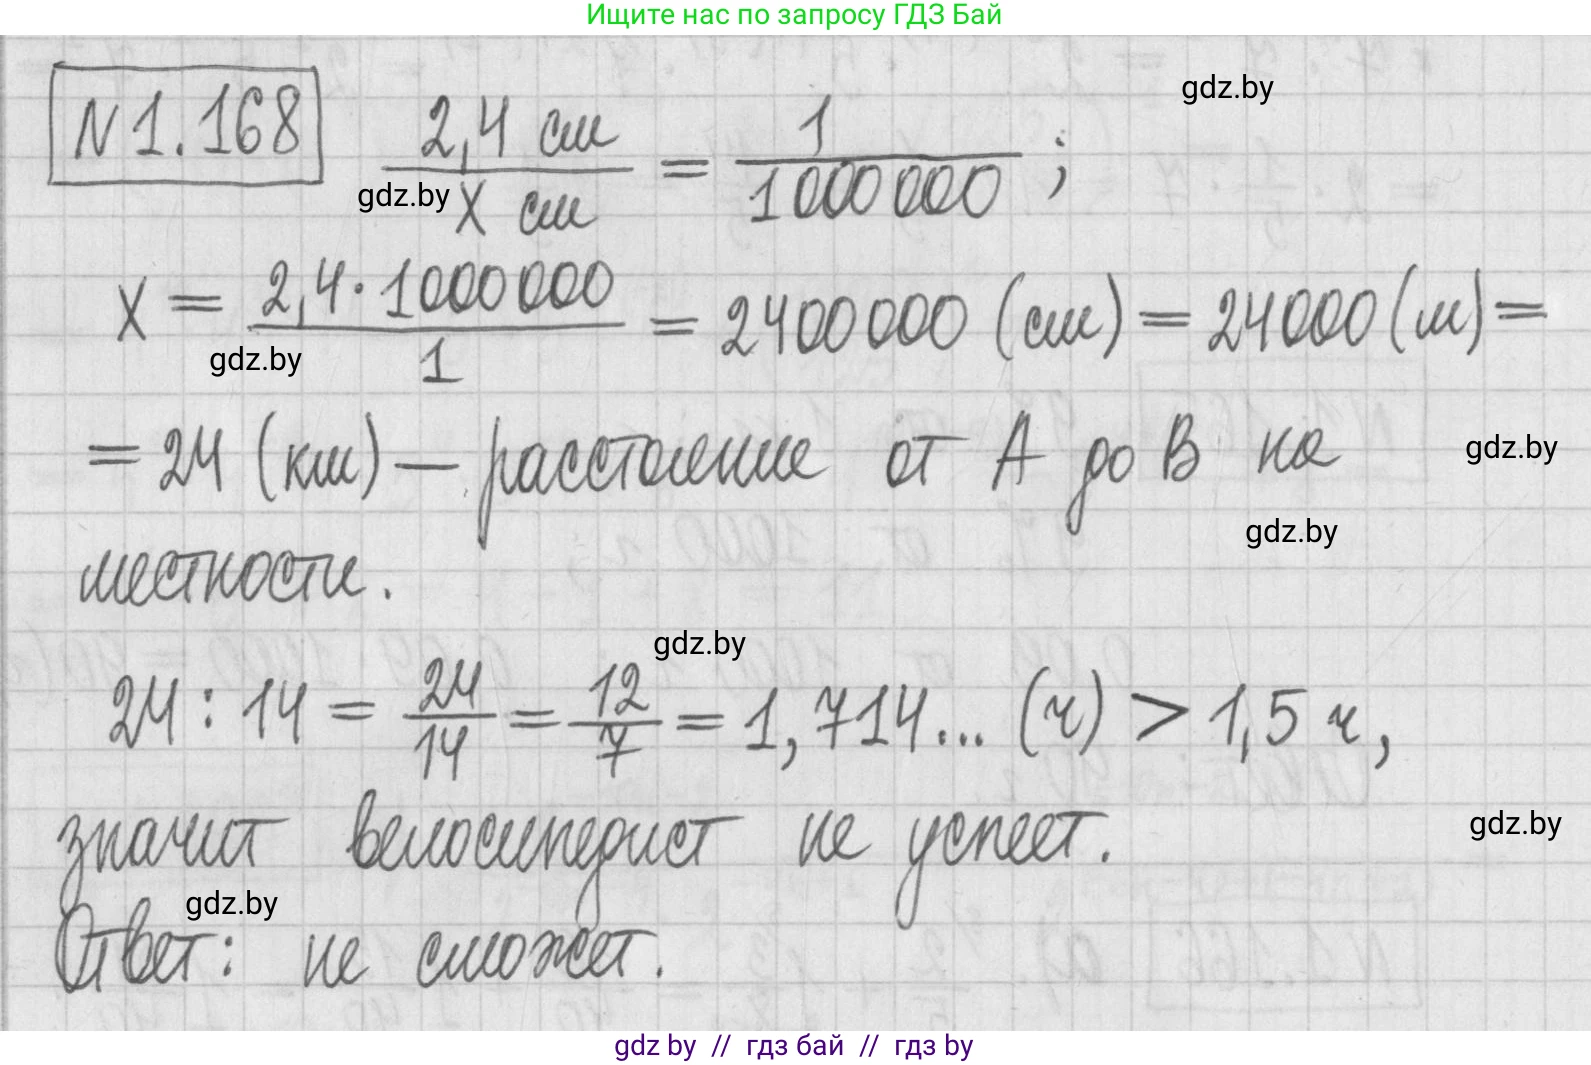 Ищите нас по запросу ГДЗ Бай
gdz.by
N 1.168 2,4 см / x см = 1 / 1000000 ;
gdz.by
x = 2,4 · 1000000 / 1 = 2400000 (см) = 24000 (м) =
gdz.by
= 24 (км) — расстояние от А до В на
gdz.by
gdz.by
местности.
gdz.by
24 : 14 = 24/14 = 12/7 = 1,714... (ч) > 1,5 ч,
значит велосипедист не успеет.
gdz.by
gdz.by
Ответ: не сможет.
gdz by // гдз бай // гдз by